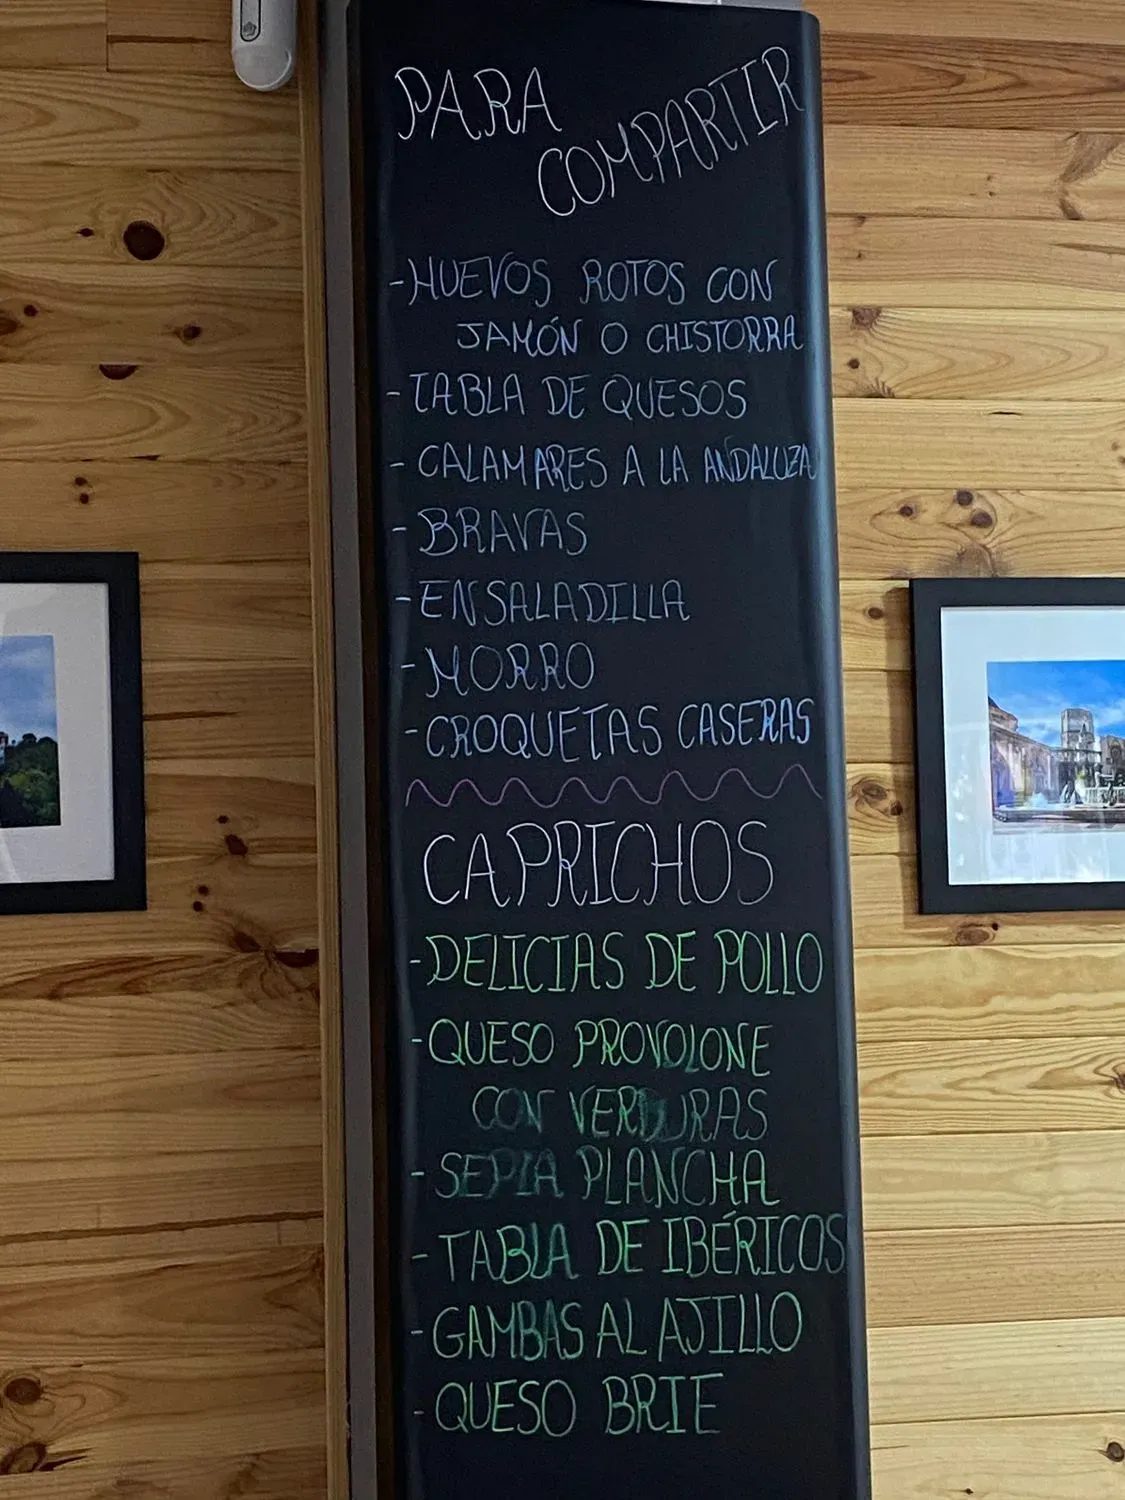 PARA
COMPARTIR
-HUEVOS ROTOS CON
JAMÓN O CHISTORRA
-TABLA DE QUESOS
-CALAMARES A LA ANDALUZA
-BRAVAS
-ENSALADILLA
-MORRO
-CROQUETAS CASERAS
CAPRICHOS
-DELICIAS DE POLLO
-QUESO PROVOLONE
CON VERDURAS
-SEPIA PLANCHA
-TABLA DE IBÉRICOS
-GAMBAS AL AJILLO
-QUESO BRIE